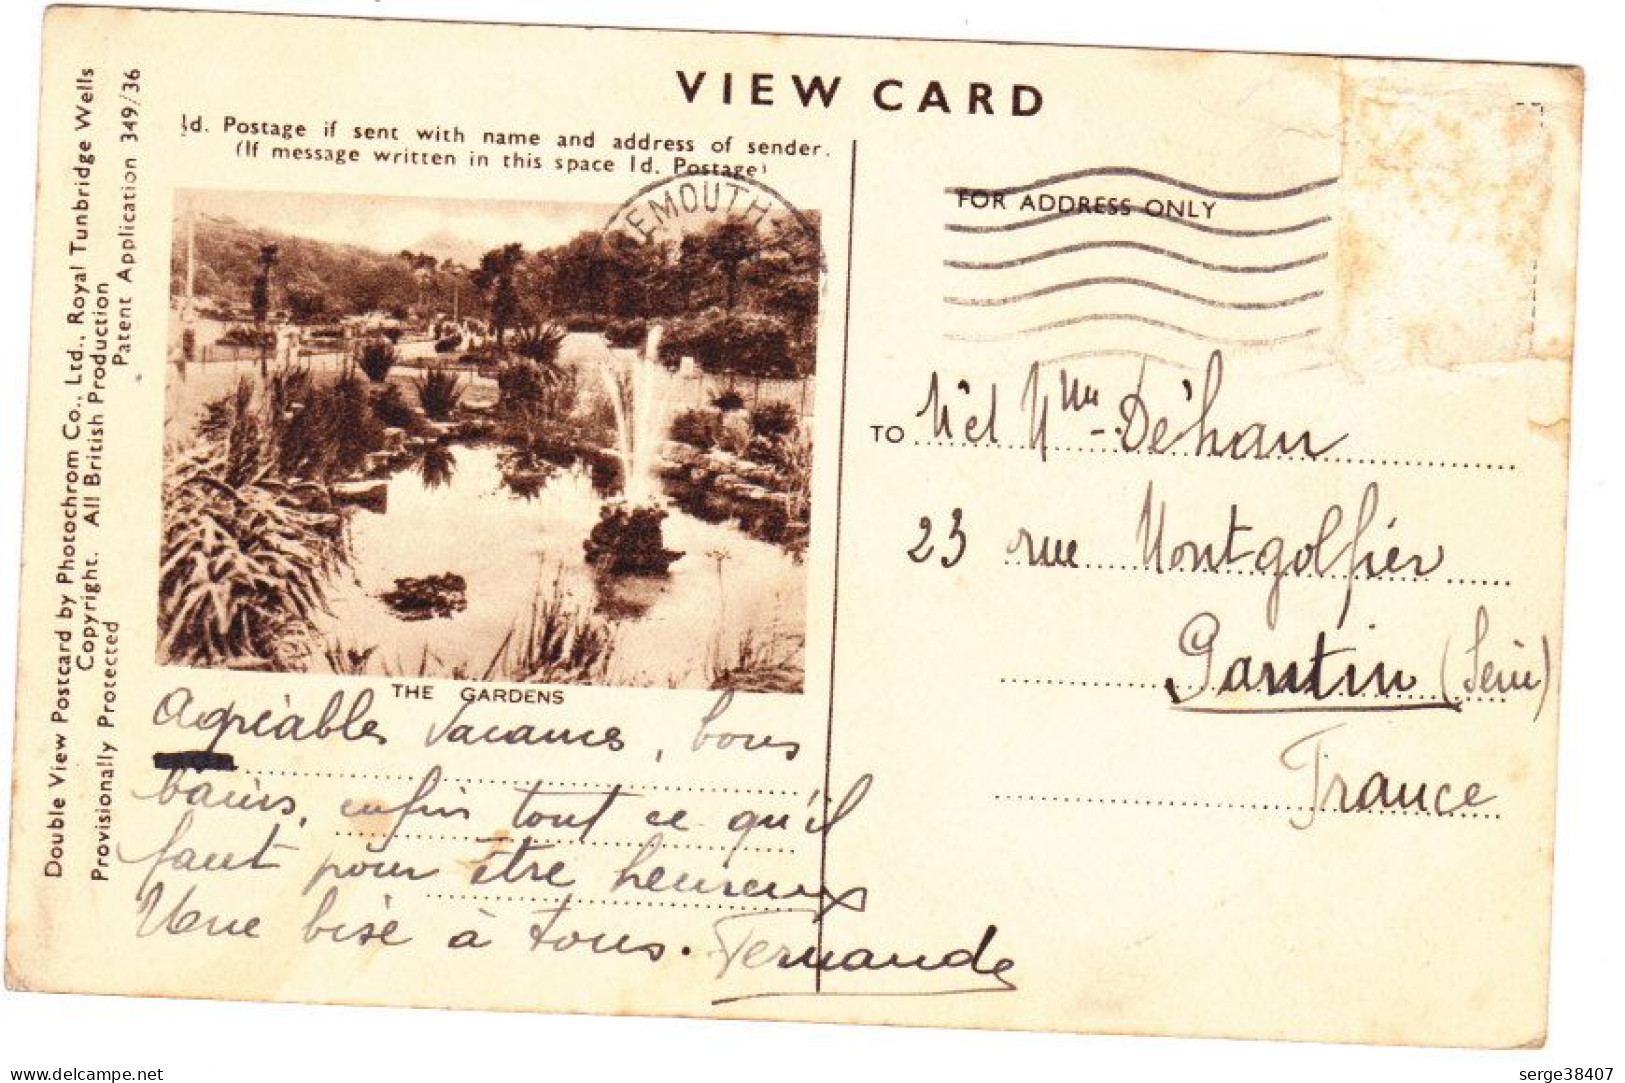 VIEW CARD
½d. Postage if sent with name and address of sender.
(If message written in this space 1d. Postage)
EMOUTH
FOR ADDRESS ONLY
THE GARDENS
Agréables vacances, bons
bains, enfin tout ce qu'il
faut pour être heureux
Une bise à tous. Fernande
TO M et Mme Déhan
23 rue Montgolfier
Pantin (Seine)
France
Double View Postcard by Photochrom Co., Ltd., Royal Tunbridge Wells
Copyright. All British Production
Provisionally Protected Patent Application 349/36
delcampe.net
serge38407